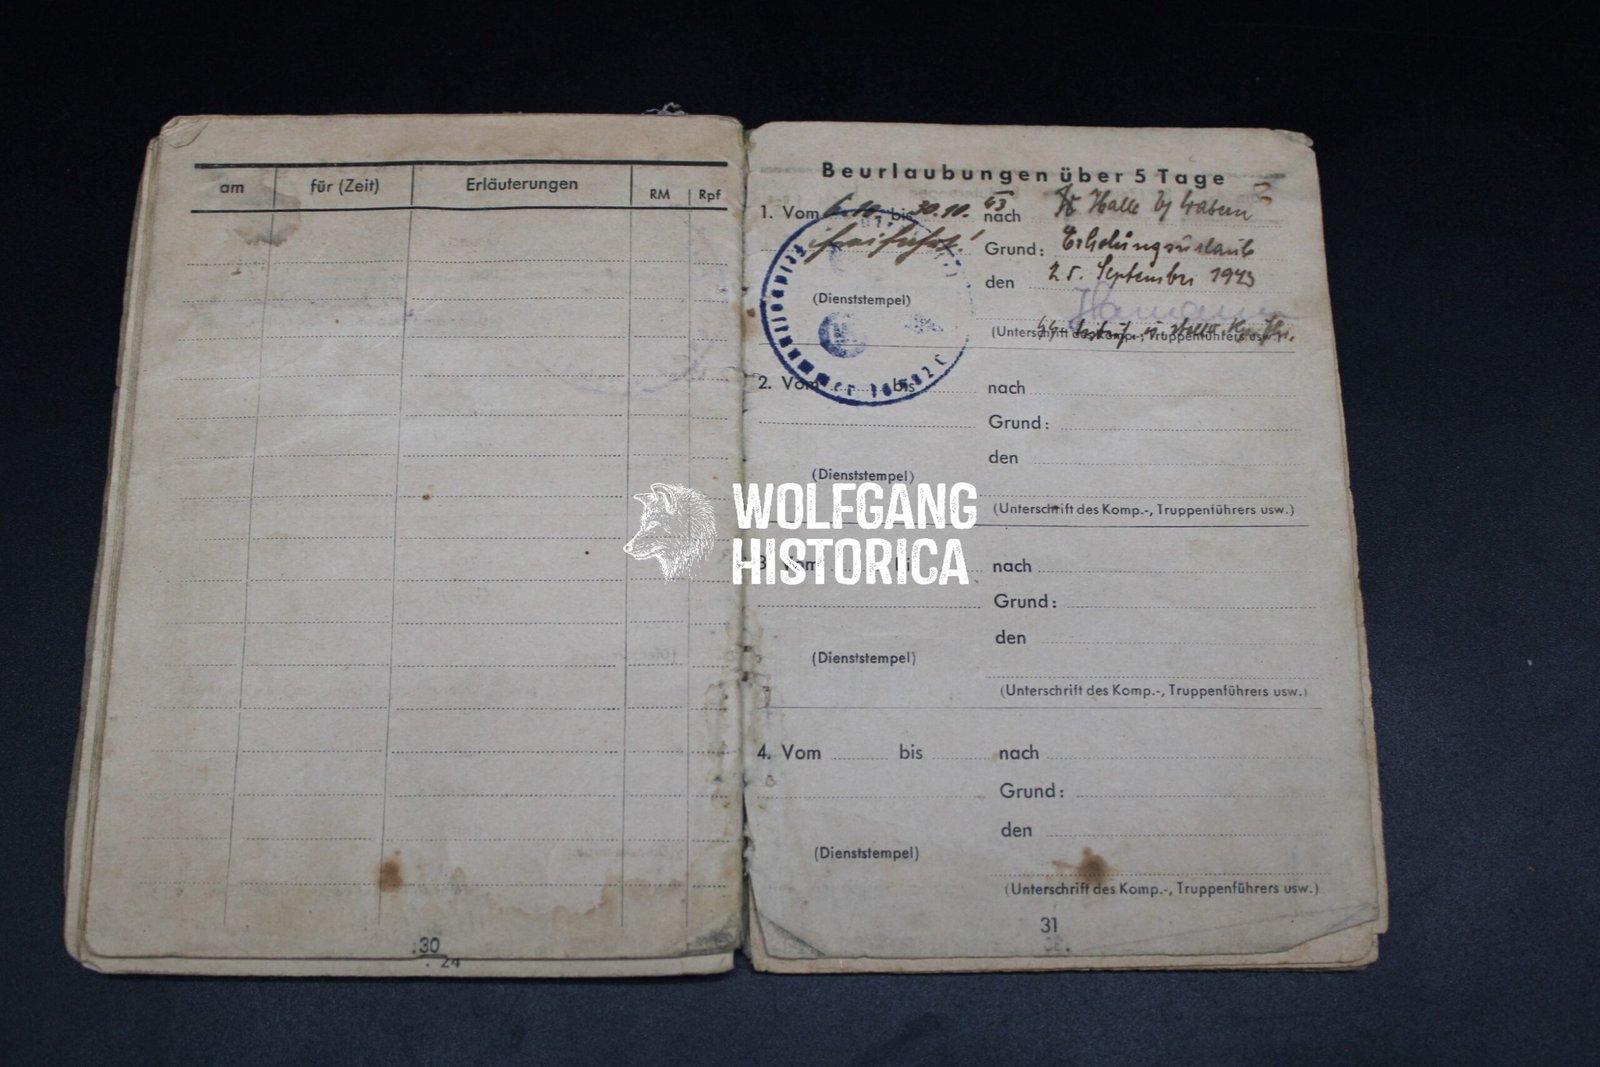 am für (Zeit) Erläuterungen RM Rpf
30
24
Beurlaubungen über 5 Tage
1. Vom 6.10. bis 30.10. 43 nach Halle
Grund: Erholungsurlaub
den 25. September 1943
(Dienststempel)
(Unterschrift des Komp.-, Truppenführers usw.)
Feldpostnummer
2. Vom bis nach
Grund:
den
(Dienststempel)
(Unterschrift des Komp.-, Truppenführers usw.)
WOLFGANG
HISTORICA
3. Vom bis nach
Grund:
den
(Dienststempel)
(Unterschrift des Komp.-, Truppenführers usw.)
4. Vom bis nach
Grund:
den
(Dienststempel)
(Unterschrift des Komp.-, Truppenführers usw.)
31